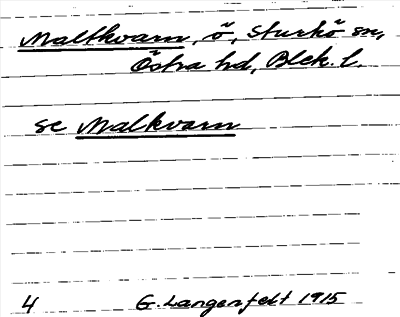 Maltkvarn, ö, Sturkö sn,
Östra hd, Blek. l.
se Malkvarn
4 G. Langenfelt 1915